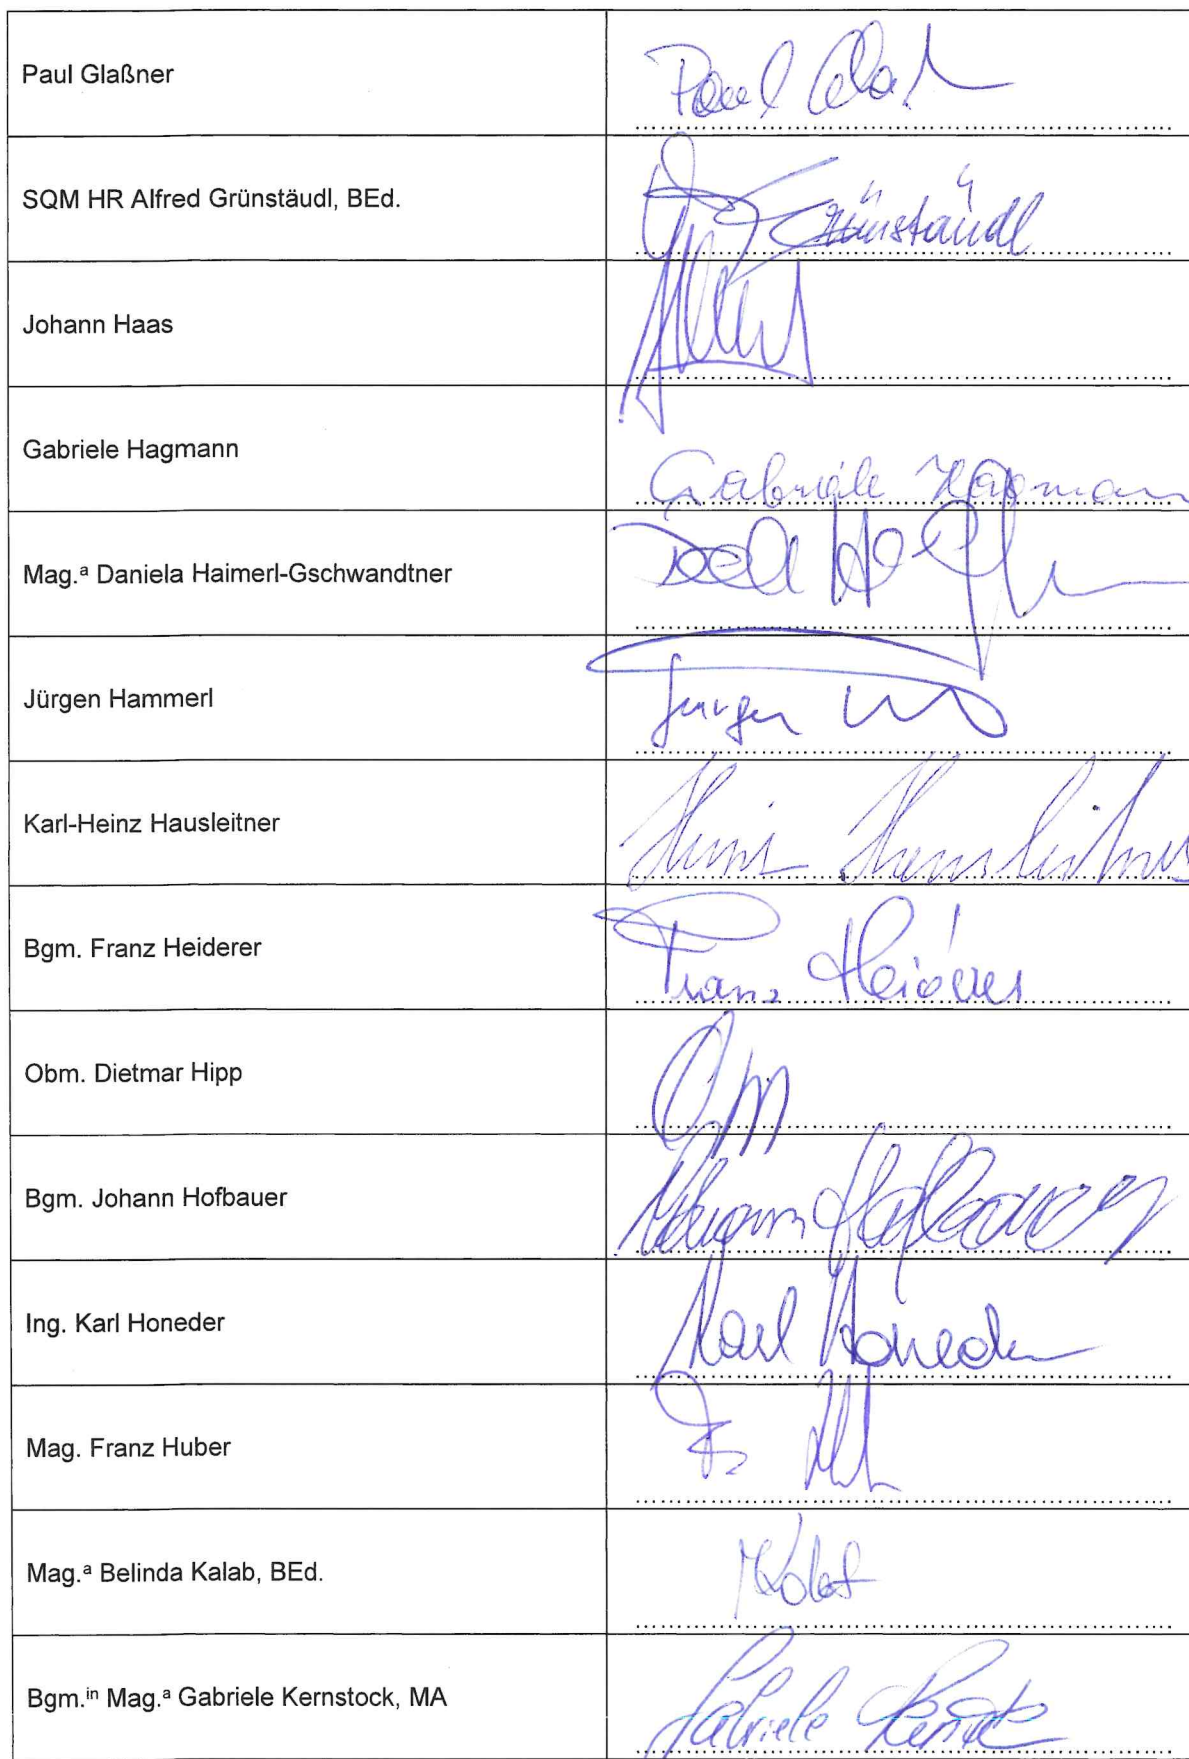 Paul Glaßner
Paul Glaß
SQM HR Alfred Grünstäudl, BEd.
Grünstäudl
Johann Haas
Gabriele Hagmann
Gabriele Hagmann
Mag.ᵃ Daniela Haimerl-Gschwandtner
Jürgen Hammerl
Jürgen
Karl-Heinz Hausleitner
Heinz Hausleitner
Bgm. Franz Heiderer
Franz Heiderer
Obm. Dietmar Hipp
Bgm. Johann Hofbauer
Johann Hofbauer
Ing. Karl Honeder
Karl Honeder
Mag. Franz Huber
Mag.ᵃ Belinda Kalab, BEd.
Kalab
Bgm.ⁱⁿ Mag.ᵃ Gabriele Kernstock, MA
Gabriele Kernstock